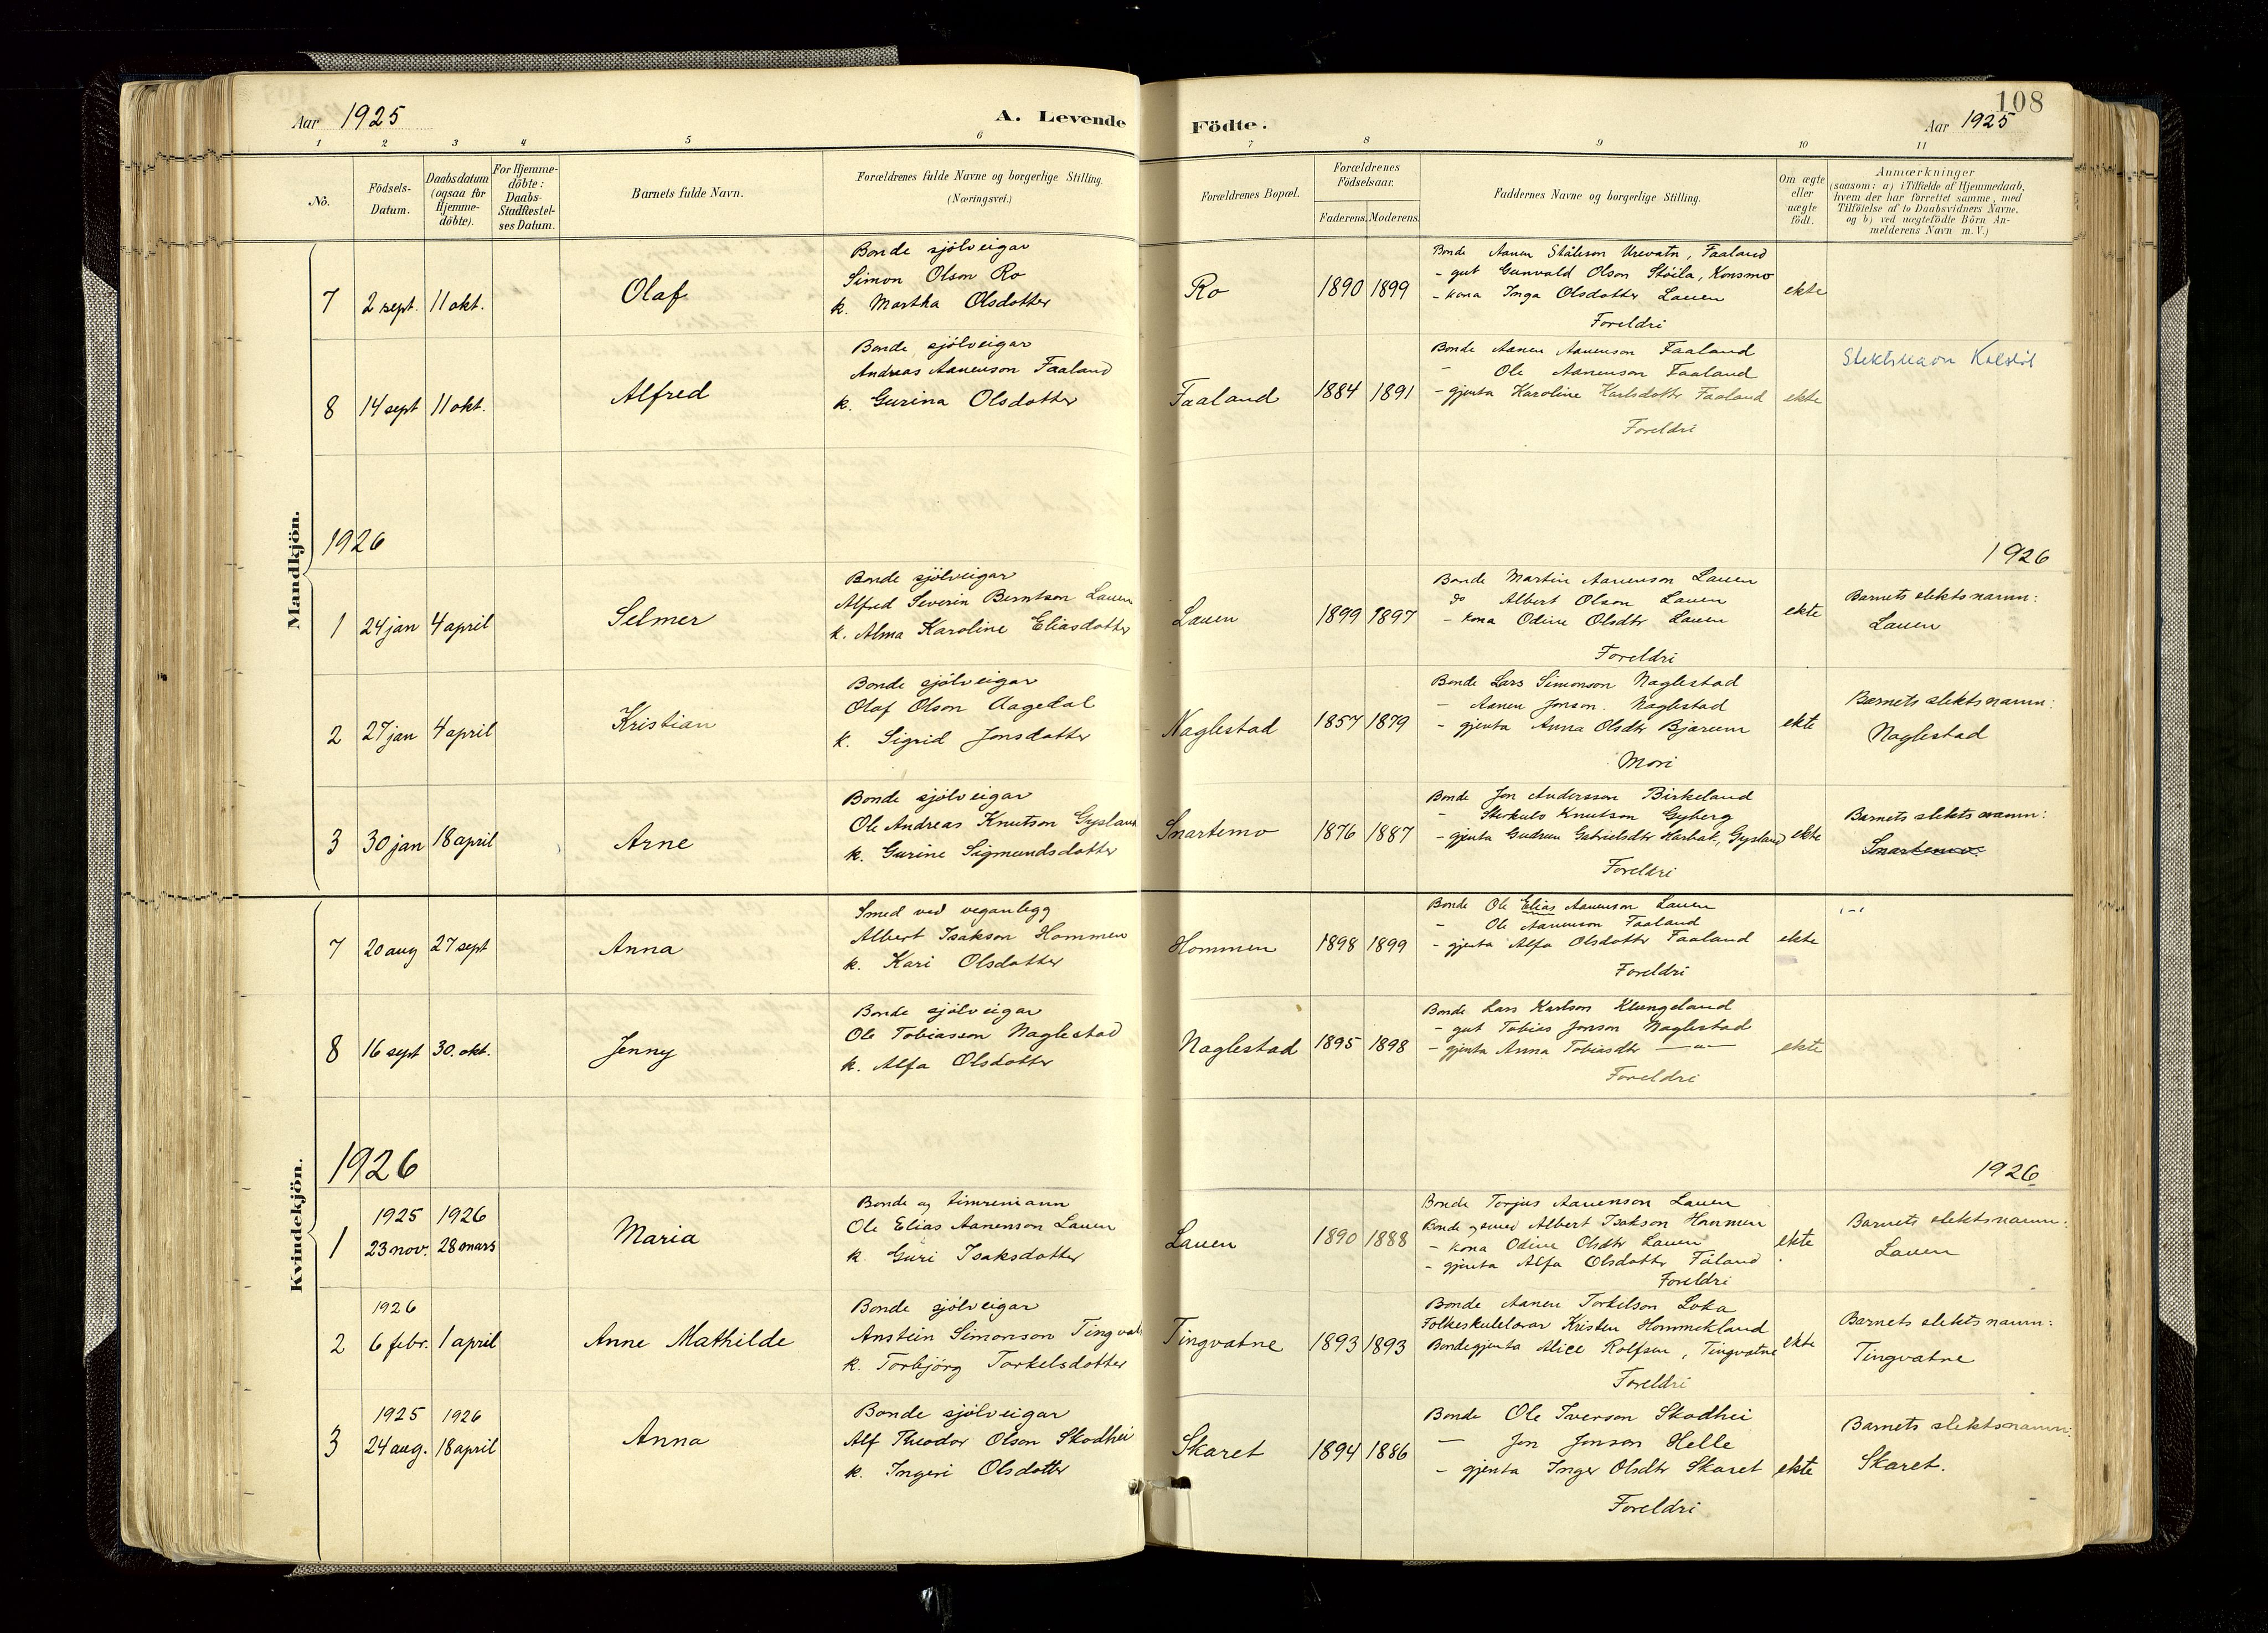 108
Aar 1925
A. Levende Födte.
Aar 1925
1 2 3 4 5 6 7 8 9 10 11
No.
Födsels-Datum.
Daabsdatum (ogsaa for Hjemme-döbte).
For Hjemme-döbte: Daabs-Stadfæstel-ses Datum.
Barnets fulde Navn.
Forældrenes fulde Navne og borgerlige Stilling.
(Næringsvei.)
Forældrenes Bopæl.
Forældrenes Födselsaar.
Faderens. Moderens.
Faddernes Navne og borgerlige Stilling.
Om ægte eller uægte födt.
Anmærkninger
(saasom: a) i Tilfælde af Hjemmedaab,
hvem der har forrettet samme, med
Tilföielse af to Daabsvidners Navne.
og b) ved uægtefödte Börn An-
melderens Navn m. V.)
Mandkjön.
7 2 sept. 11 okt.
Olaf
Bonde sjölveigar
Simon Olson Ro
k. Martha Olsdotter
Ro
1890 1899
Bonde Aanen Ståleson Urevatn, Faaland
- gut Gunvald Olson Stöila, Konsmo
- kona Inga Olsdotter Lauen
Foreldri
ekte
8 14 sept 11 okt.
Alfred
Bonde sjölveigar
Andreas Aanenson Faaland
k. Gurina Olsdotter
Faaland
1884 1891
Bonde Aanen Aanenson Faaland
- Ole Aanenson Faaland
- gjenta Karoline Karlsdottr Faaland
Foreldri
ekte
1926
1926
1 24 jan 4 april
Selmer
Bonde sjölveigar
Alfred Severin Berntson Lauen
k. Alma Karoline Eliasdotter
Lauen
1899 1897
Bonde Martin Aanenson Lauen
do Albert Olson Lauen
- kona Odine Olsdtr Lauen
Foreldri
ekte
Barnets slektsnamn:
Lauen
2 27 jan 4 april
Kristian
Bonde sjölveigar
Olaf Olson Aagedal
k. Sigrid Jonsdotter
Naglestad
1857 1879
Bonde Lars Simonson Naglestad
- Aanen Jonson. Naglestad
- gjenta Anna Olsdtr Bjærum
Mori
ekte
Barnets slektsnamn:
Naglestad
3 30 jan 18 april
Arne
Bonde sjölveigar
Ole Andreas Knutson Gysland
k. Gurine Sigmundsdotter
Snartemo
1876 1887
Bonde Jon Andersson Birkeland
- Knutson Gyberg
- gjenta Gudrun Gabrielsdtr Gysland
Foreldri
ekte
Barnets slektsnamn:
Snartemo
Kvindekjön.
7 20 aug 27 sept
Anna
Smed ved veganlegg
Albert Isakson Hommen
k. Kari Olsdotter
Hommen
1898 1899
Bonde Ole Elias Aanenson Lauen
- Ole Aanenson Faaland
- gjenta Alfa Olsdottr Faaland
Foreldri
ekte
8 16 sept 30. okt.
Jenny
Bonde sjölveigar
Ole Tobiasson Naglestad
k. Alfa Olsdotter
Naglestad
1895 1898
Bonde Lars Karlson Klungeland
- gut Tobias Jonson Naglestad
- gjenta Anna Tobiasdtr —"—
Foreldri
ekte
1926
1926
1925 1926
1 23 nov. 28 mars
Maria
Bonde og timremann
Ole Elias Aanenson Lauen
k. Guri Isaksdotter
Lauen
1890 1888
Bonde Torjus Aanenson Lauen
Bonde og smed Albert Isakson Hommen
- kona Odine Olsdtr Lauen
- gjenta Alfa Olsdottr Fåland
Foreldri
ekte
Barnets slektsnamn:
Lauen
1926
2 6 febr. 1 april
Anne Mathilde
Bonde sjölveigar
Anstein Simonson Tingvatn
k. Torbjörg Torkelsdotter
Tingvatne
1893 1893
Bonde Aanen Torkelson Loka
Folkeskulelærar Kristen Hommekland
Bondegjenta Alice Rolfsen, Tingvatne
Foreldri
ekte
Barnets slektsnamn:
Tingvatne
1925 1926
3 24 aug. 18 april
Anna
Bonde sjölveigar
Alf Theodor Olson Skodhei
k. Ingeri Olsdottr
Skaret
1894 1886
Bonde Ole Iverson Skodhei
— Jon Jonson Helle
- gjenta Inger Olsdtr Skaret
Foreldri
ekte
Barnets slektsnamn:
Skaret.